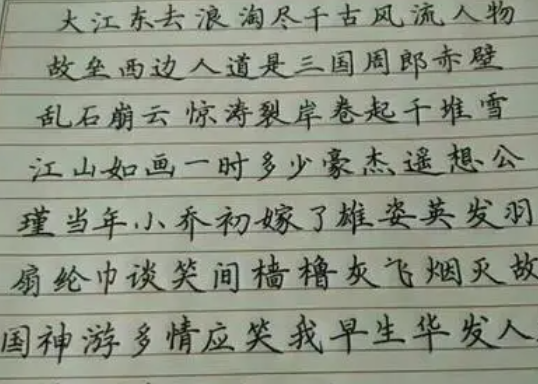 大江东去浪淘尽千古风流人物
故垒西边人道是三国周郎赤壁
乱石崩云惊涛裂岸卷起千堆雪
江山如画一时多少豪杰遥想公
瑾当年小乔初嫁了雄姿英发羽
扇纶巾谈笑间樯橹灰飞烟灭故
国神游多情应笑我早生华发人